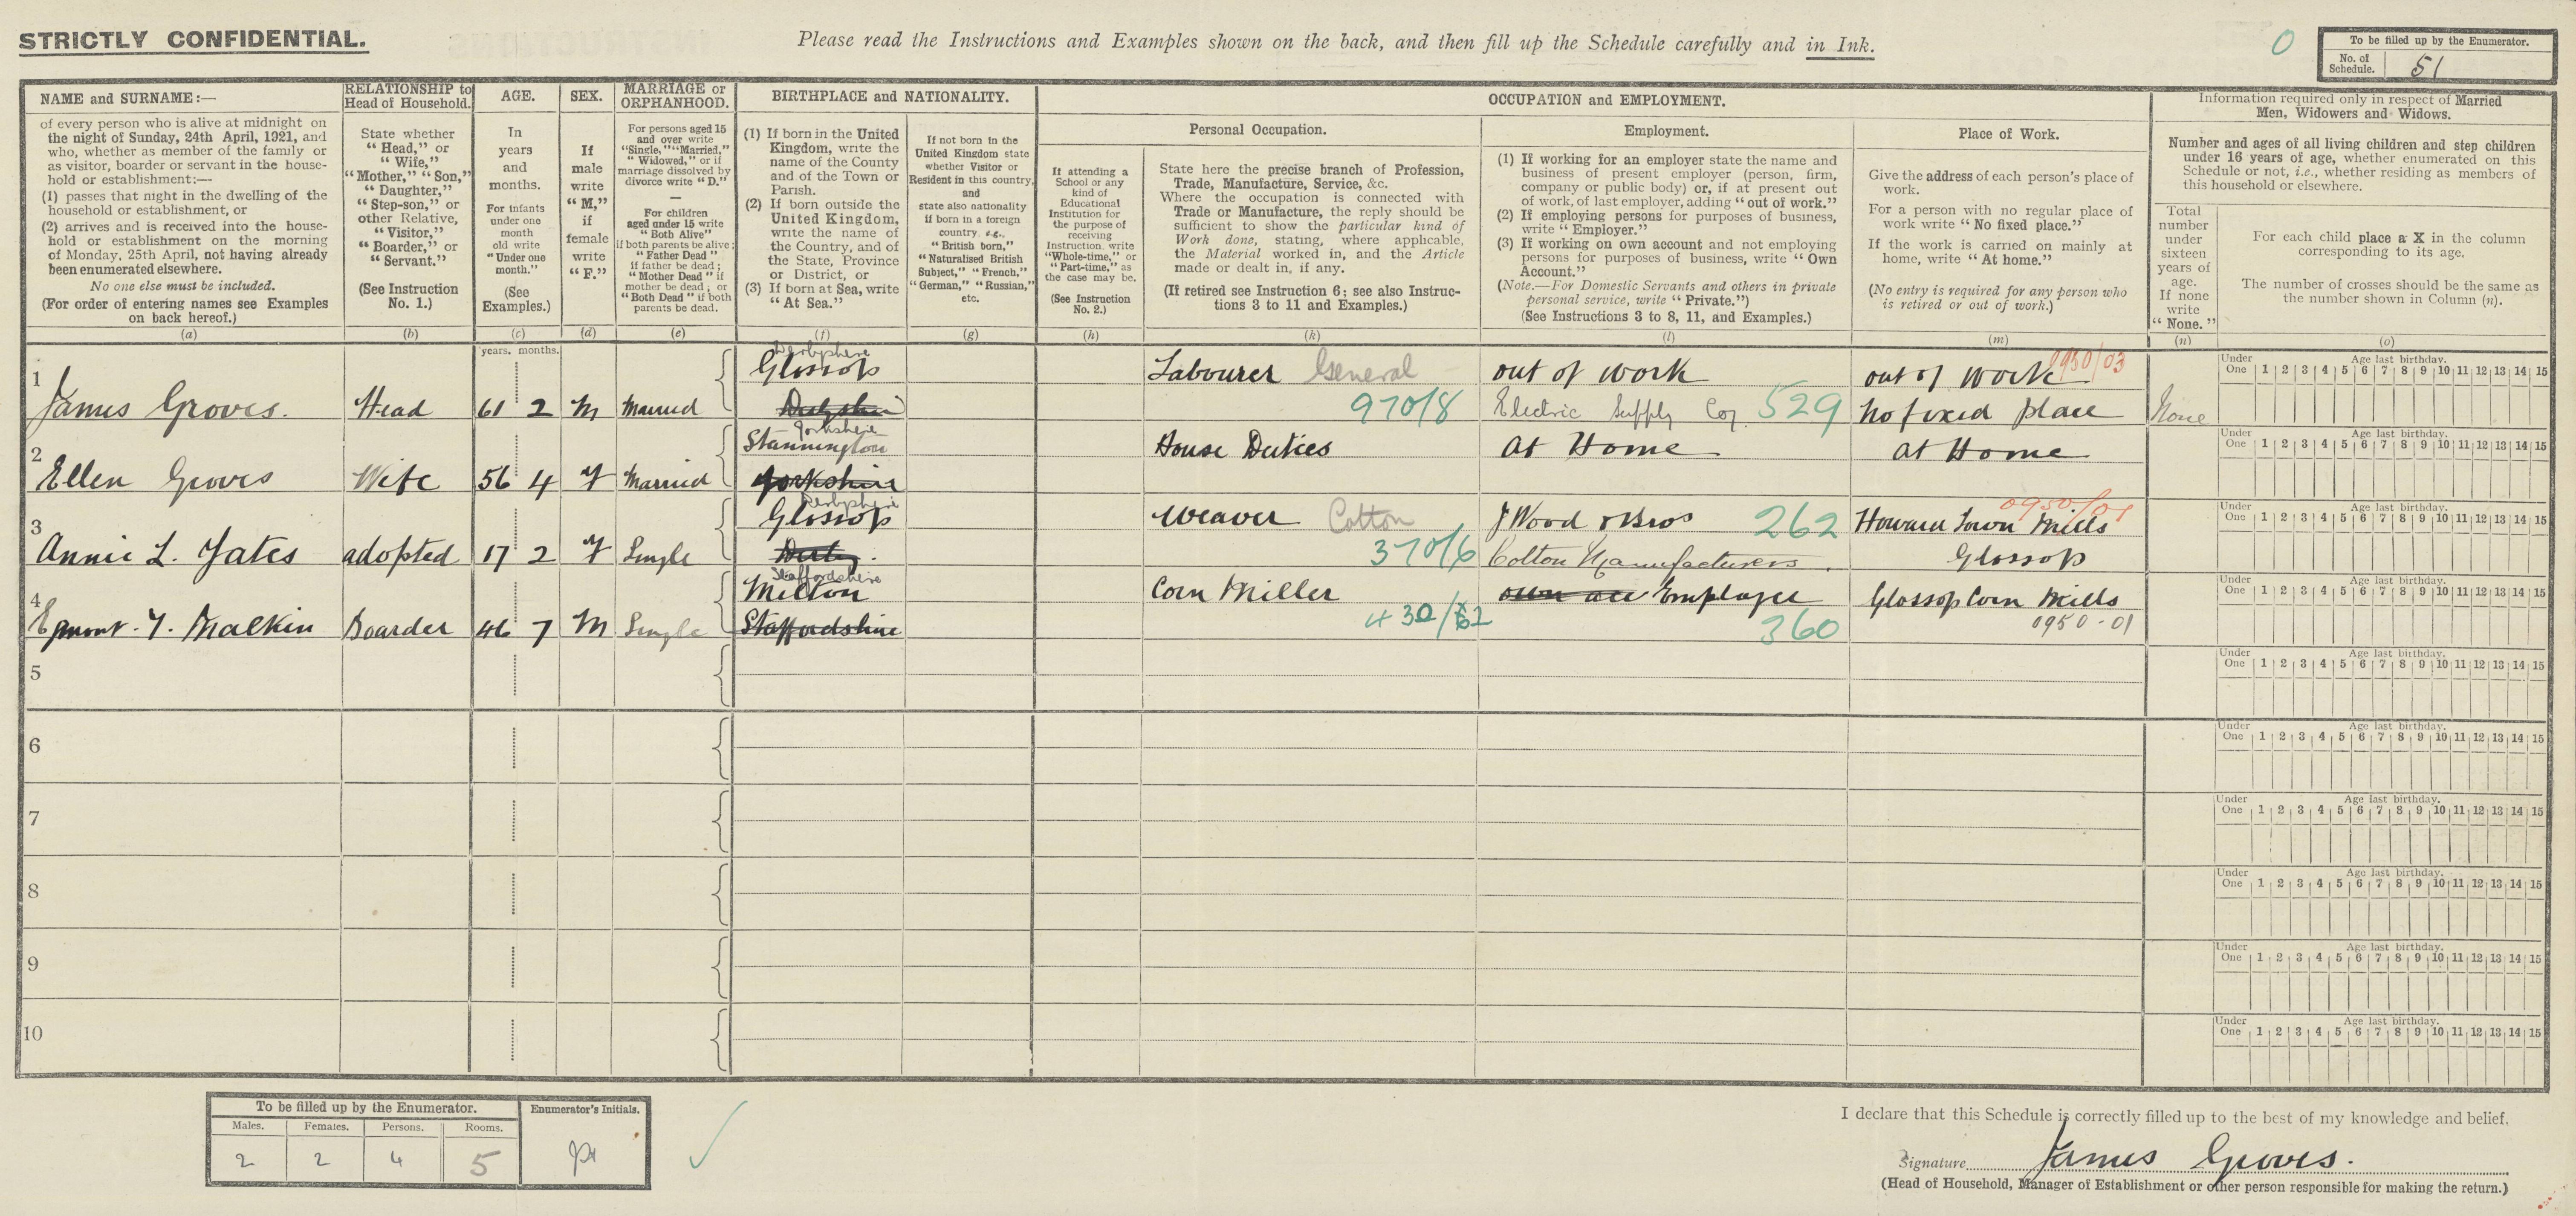 STRICTLY CONFIDENTIAL.
Please read the Instructions and Examples shown on the back, and then fill up the Schedule carefully and in Ink.
0
To be filled up by the Enumerator.
No. of Schedule. 51
NAME and SURNAME:—
of every person who is alive at midnight on
the night of Sunday, 24th April, 1921, and
who, whether as member of the family or
as visitor, boarder or servant in the house-
hold or establishment:—
(1) passes that night in the dwelling of the
household or establishment, or
(2) arrives and is received into the house-
hold or establishment on the morning
of Monday, 25th April, not having already
been enumerated elsewhere.
No one else must be included.
(For order of entering names see Examples
on back hereof.)
(a)
RELATIONSHIP to
Head of Household.
State whether
"Head," or
"Wife,"
"Mother," "Son,"
"Daughter,"
"Step-son," or
other Relative,
"Visitor,"
"Boarder," or
"Servant."
(See Instruction
No. 1.)
(b)
AGE.
In
years
and
months.
For infants
under one
month
old write
"Under one
month."
(See
Examples.)
(c)
SEX.
If
male
write
"M,"
if
female
write
"F."
(d)
MARRIAGE or
ORPHANHOOD.
For persons aged 15
and over write
"Single," "Married,"
"Widowed," or if
marriage dissolved by
divorce write "D."
—
For children
aged under 15 write
"Both Alive"
if both parents be alive;
"Father Dead"
if father be dead;
"Mother Dead" if
mother be dead; or
"Both Dead" if both
parents be dead.
(e)
BIRTHPLACE and NATIONALITY.
(1) If born in the United
Kingdom, write the
name of the County
and of the Town or
Parish.
(2) If born outside the
United Kingdom,
write the name of
the Country, and of
the State, Province
or District, or
(3) If born at Sea, write
"At Sea."
(f)
If not born in the
United Kingdom state
whether Visitor or
Resident in this country,
and
state also nationality
if born in a foreign
country. e.g.,
"British born,"
"Naturalised British
Subject," "French,"
"German," "Russian,"
etc.
(g)
OCCUPATION and EMPLOYMENT.
If attending a
School or any
kind of
Educational
Institution for
the purpose of
receiving
Instruction, write
"Whole-time," or
"Part-time," as
the case may be.
(See Instruction
No. 2.)
(h)
Personal Occupation.
State here the precise branch of Profession,
Trade, Manufacture, Service, &c.
Where the occupation is connected with
Trade or Manufacture, the reply should be
sufficient to show the particular kind of
Work done, stating, where applicable,
the Material worked in, and the Article
made or dealt in, if any.
(If retired see Instruction 6; see also Instruc-
tions 3 to 11 and Examples.)
(k)
Employment.
(1) If working for an employer state the name and
business of present employer (person, firm,
company or public body) or, if at present out
of work, of last employer, adding "out of work."
(2) If employing persons for purposes of business,
write "Employer."
(3) If working on own account and not employing
persons for purposes of business, write "Own
Account."
(Note.—For Domestic Servants and others in private
personal service, write "Private.")
(See Instructions 3 to 8, 11, and Examples.)
(l)
Place of Work.
Give the address of each person's place of
work.
For a person with no regular place of
work write "No fixed place."
If the work is carried on mainly at
home, write "At home."
(No entry is required for any person who
is retired or out of work.)
(m)
Information required only in respect of Married
Men, Widowers and Widows.
Number and ages of all living children and step children
under 16 years of age, whether enumerated on this
Schedule or not, i.e., whether residing as members of
this household or elsewhere.
Total
number
under
sixteen
years of
age.
If none
write
"None."
(n)
For each child place a X in the column
corresponding to its age.
The number of crosses should be the same as
the number shown in Column (n).
(o)
years. months.
1 James Groves. Head 61 2 M Married
Derbyshire
Glossop
Derbyshire
Labourer General
970/8
out of work
Electric Supply Coy. 529
out of work 0950/03
No fixed place
None
Under One Age last birthday. 1 2 3 4 5 6 7 8 9 10 11 12 13 14 15
2 Ellen Groves Wife 56 4 F Married
Yorkshire
Stannington
Yorkshire
House Duties
At Home
At Home
Under One Age last birthday. 1 2 3 4 5 6 7 8 9 10 11 12 13 14 15
3 Annie L. Yates adopted 17 2 F Single
Derbyshire
Glossop
Derby
Weaver Cotton
370/6
J Wood & Bros 262
Cotton Manufacturers.
0950/01
Howard Town Mills
Glossop
Under One Age last birthday. 1 2 3 4 5 6 7 8 9 10 11 12 13 14 15
4 Malkin Boarder 46 7 M Single
Staffordshire
Milton
Staffordshire
Corn Miller
own acc Employer
360
Glossop Corn Mills
0950-01
Under One Age last birthday. 1 2 3 4 5 6 7 8 9 10 11 12 13 14 15
5
Under One Age last birthday. 1 2 3 4 5 6 7 8 9 10 11 12 13 14 15
6
Under One Age last birthday. 1 2 3 4 5 6 7 8 9 10 11 12 13 14 15
7
Under One Age last birthday. 1 2 3 4 5 6 7 8 9 10 11 12 13 14 15
8
Under One Age last birthday. 1 2 3 4 5 6 7 8 9 10 11 12 13 14 15
9
Under One Age last birthday. 1 2 3 4 5 6 7 8 9 10 11 12 13 14 15
10
Under One Age last birthday. 1 2 3 4 5 6 7 8 9 10 11 12 13 14 15
To be filled up by the Enumerator.
Males. Females. Persons. Rooms.
2 2 4 5
Enumerator's Initials.
I declare that this Schedule is correctly filled up to the best of my knowledge and belief.
Signature James Groves.
(Head of Household, Manager of Establishment or other person responsible for making the return.)